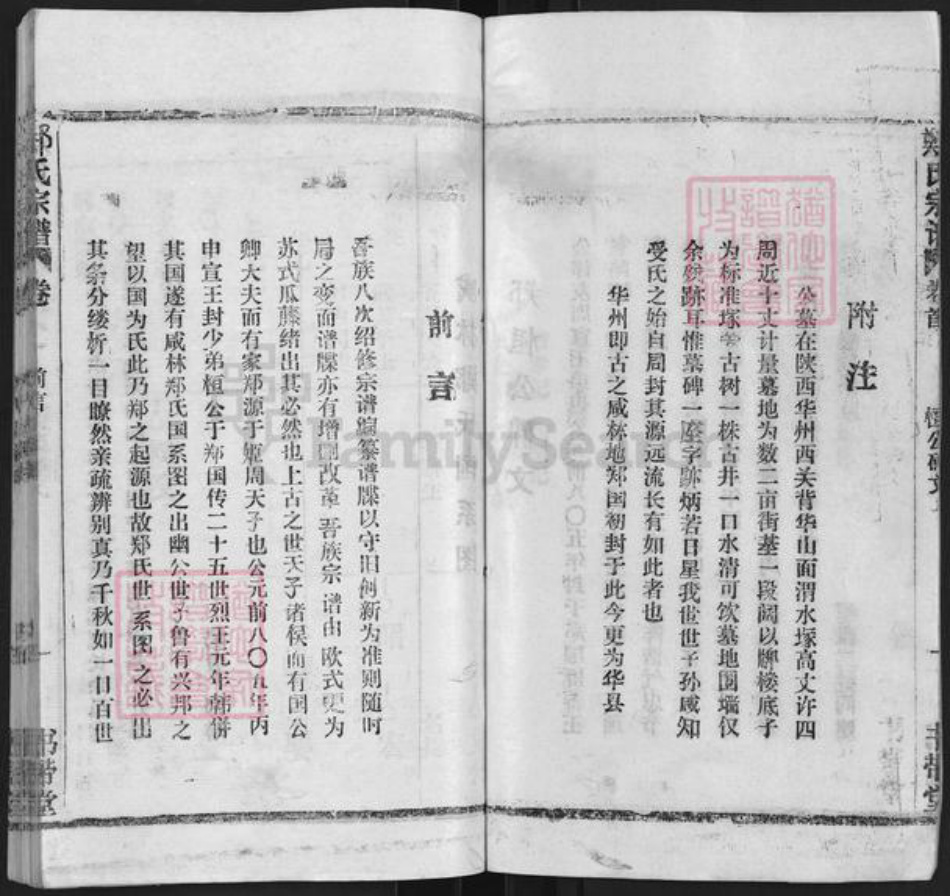 郑氏宗谱
卷首
桓公碑文
书带堂
附注
公墓在陕西华州西关背华山面渭水塚高丈许四
周近十丈计量墓地为数二亩街基一段阔以牌楼底子
为标准塚旁古树一株古井一口水清可饮墓地围墙仅
余残跡耳惟墓碑一座字跡炳若日星我世世子孙咸知
受氏之始自周封其源远流长有如此者也
华州即古之咸林地郑国初封于此今更为华县
前言
吾族八次绍修宗谱编纂谱牒以守旧创新为准则随时
局之变而谱牒亦有增删改革吾族宗谱由欧式更为
苏式瓜藤绪出其必然也上古之世天子诸候而有国公
卿大夫而有家郑源于姬周天子也公元前八〇五年丙
申宣王封少弟桓公于郑国传二十五世烈王元年韩併
其国遂有咸林郑氏国系图之出幽公世子鲁有兴邦之
望以国为氏此乃郑之起源也故郑氏世系图之必出
其条分缕析一目瞭然亲疏辨别真乃千秋如一日百世
郑氏宗谱
卷
前言
书带堂
FamilySearch